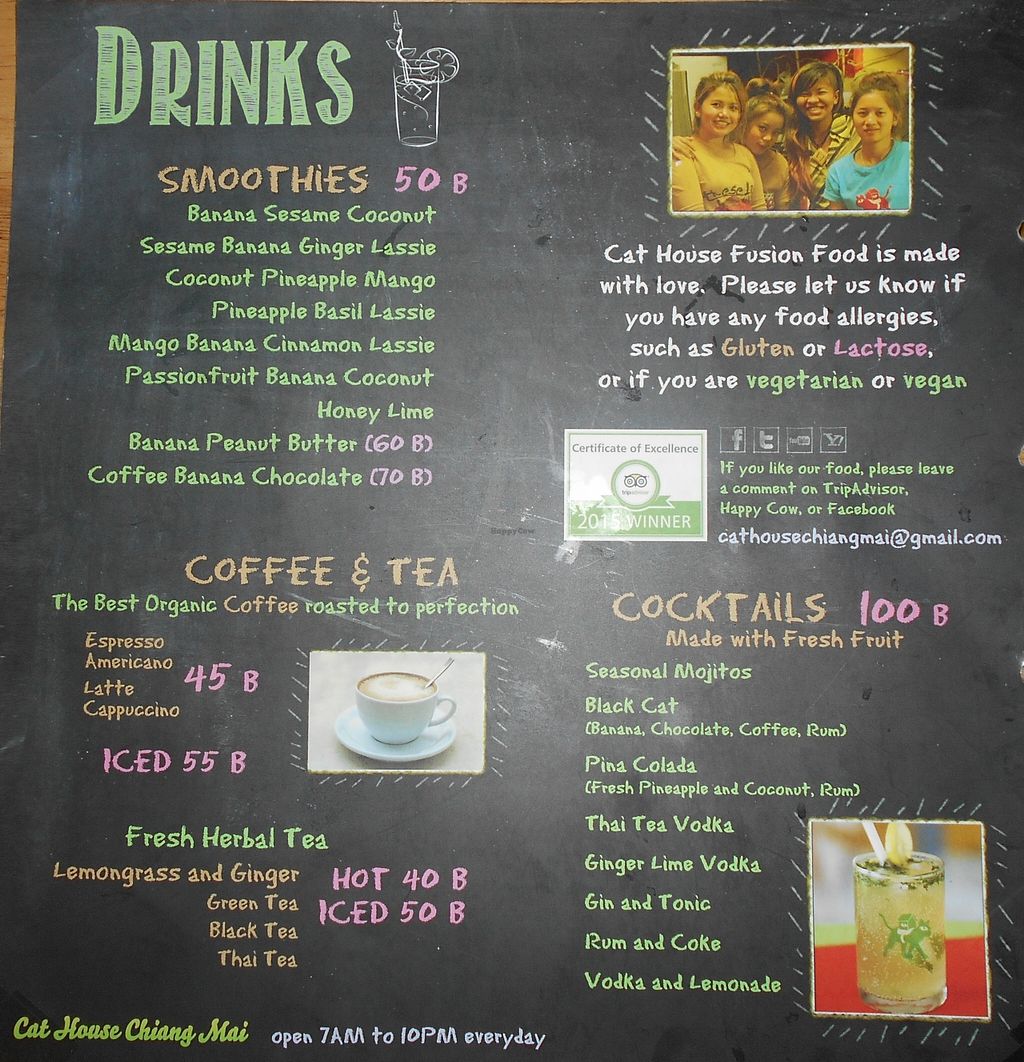 DRINKS
SMOOTHIES 50 B
Banana Sesame Coconut
Sesame Banana Ginger Lassie
Coconut Pineapple Mango
Pineapple Basil Lassie
Mango Banana Cinnamon Lassie
Passionfruit Banana Coconut
Honey Lime
Banana Peanut Butter (60 B)
Coffee Banana Chocolate (70 B)
COFFEE & TEA
The Best Organic Coffee roasted to perfection
Espresso
Americano
Latte
Cappuccino
45 B
ICED 55 B
Fresh Herbal Tea
Lemongrass and Ginger
Green Tea
Black Tea
Thai Tea
HOT 40 B
ICED 50 B
Cat House Chiang Mai open 7AM to 10PM everyday
Cat House Fusion Food is made
with love. Please let us know if
you have any food allergies,
such as Gluten or Lactose,
or if you are vegetarian or vegan
Certificate of Excellence
tripadvisor
2015 WINNER
If you like our food, please leave
a comment on TripAdvisor,
Happy Cow, or Facebook
cathousechiangmai@gmail.com
HappyCow
COCKTAILS 100 B
Made with Fresh Fruit
Seasonal Mojitos
Black Cat
(Banana, Chocolate, Coffee, Rum)
Pina Colada
(Fresh Pineapple and Coconut, Rum)
Thai Tea Vodka
Ginger Lime Vodka
Gin and Tonic
Rum and Coke
Vodka and Lemonade